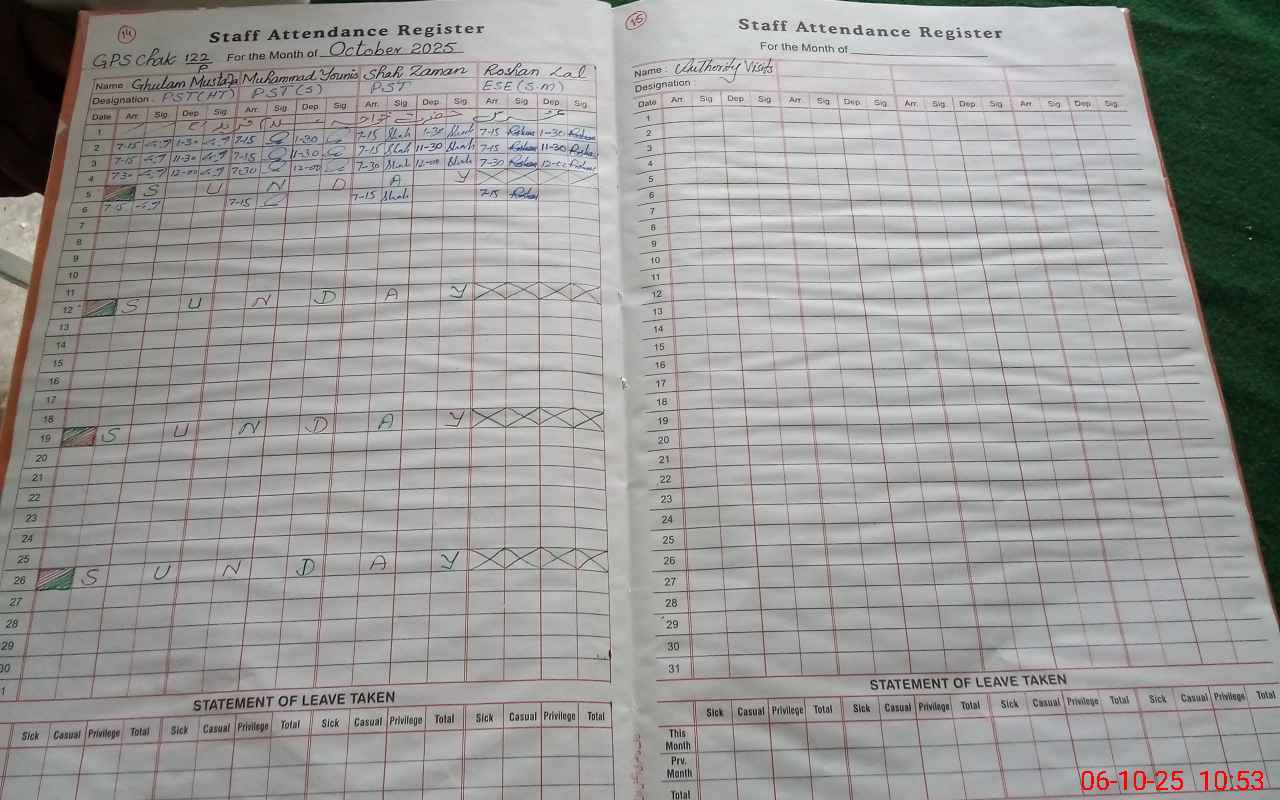 14
Staff Attendance Register
GPS Chak 122/P For the Month of October 2025
Name Ghulam Mustafa Muhammad Younis Shah Zaman Roshan Lal
Designation : PST(HT) PST(S) PST ESE(S.M)
Date Arr. Sig Dep Sig Arr. Sig Dep Sig. Arr. Sig Dep Sig Arr. Sig Dep. Sig.
1
2 7-15 1-30 7-15 1-30 7-15 Shah 1-30 Shah 7-15 Roshan 1-30 Roshan
3 7-15 11-30 7-15 11-30 7-15 Shah 11-30 Shah 7-15 Roshan 11-30 Roshan
4 7-30 12-00 7-30 12-00 7-30 Shah 12-00 Shah 7-30 Roshan 12-00 Roshan
5 S U N D A Y
6 7-15 7-15 7-15 Shah 7-15 Roshan
7
8
9
10
11
12 S U N D A Y
13
14
15
16
17
18
19 S U N D A Y
20
21
22
23
24
25
26 S U N D A Y
27
28
29
30
1
STATEMENT OF LEAVE TAKEN
Sick Casual Privilege Total Sick Casual Privilege Total Sick Casual Privilege Total Sick Casual Privilege Total
15
Staff Attendance Register
For the Month of
Name : Authority Visits
Designation :
Date Arr. Sig Dep. Sig. Arr. Sig Dep. Sig. Arr. Sig Dep. Sig. Arr. Sig Dep. Sig.
1
2
3
4
5
6
7
8
9
10
11
12
13
14
15
16
17
18
19
20
21
22
23
24
25
26
27
28
29
30
31
STATEMENT OF LEAVE TAKEN
Sick Casual Privilege Total Sick Casual Privilege Total Sick Casual Privilege Total Sick Casual Privilege Total
This Month
Prv. Month
Total
06-10-25 10:53